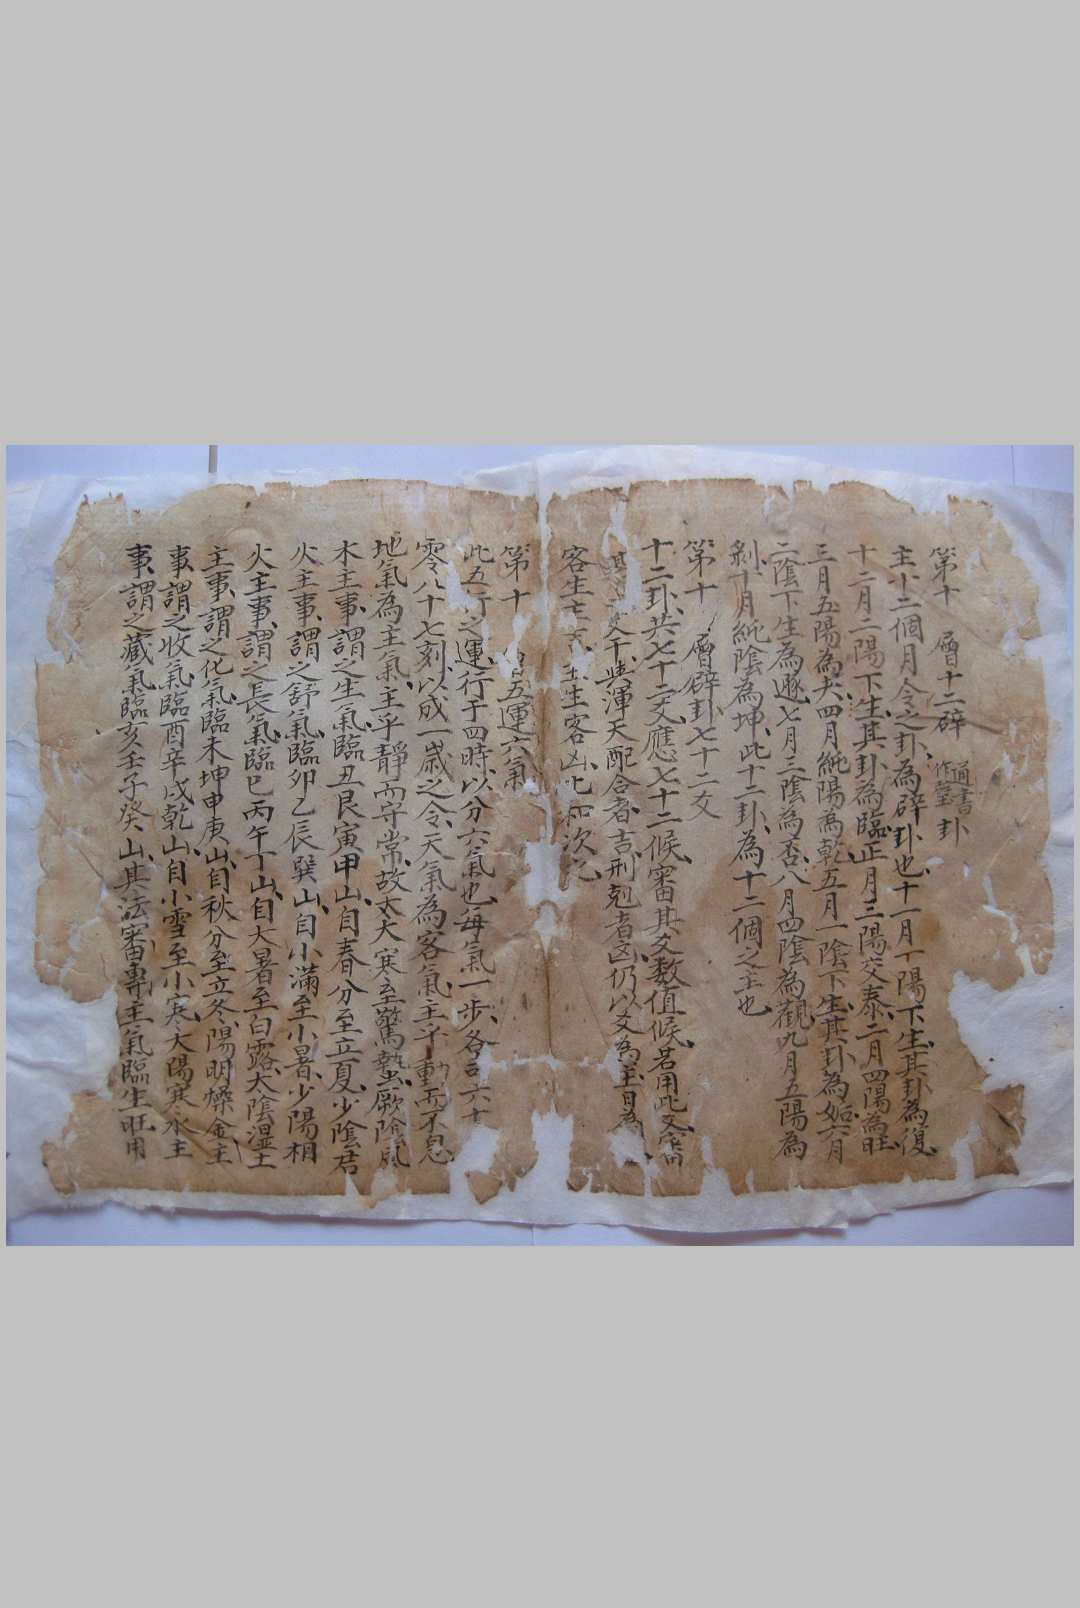 第十 層十二辟 通書作璧 卦
主十二個月令之卦為辟卦也十一月一陽下生其卦為復
十二月二陽下生其卦為臨正月三陽交泰二月四陽為壯
三月五陽為夬四月純陽為乾五月一陰下生其卦為姤六月
二陰下生為遯七月三陰為否八月四陰為觀九月五陽為
剝十月純陰為坤此十二卦為十二個之主也
第十 層辟卦七十二爻
十二卦共七十二爻應七十二候審其爻数值候若用此爻審
其 爻干與渾天配合者吉刑剋者凶仍以爻為主日為
客生主吉主生客凶比和次之
第十 層五運六氣
此五行之運行于四時以分六氣也每氣一步各言六十
零八十七刻以成一歳之令天氣為客氣主乎動而不息
地氣為主氣主乎靜而守常故大寒至驚蟄厥陰風
木主事謂之生氣臨丑艮寅甲山自春分至立夏少陰君
火主事謂之舒氣臨卯乙辰巽山自小滿至小暑少陽相
火主事謂之長氣臨巳丙午丁山自大暑至白露大陰湿土
主事謂之化氣臨未坤申庚山自秋分至立冬陽明燥金主
事謂之收氣臨酉辛戌乾山自小雪至小寒太陽寒水主
事謂之藏氣臨亥壬子癸山其法審專主氣臨生旺用